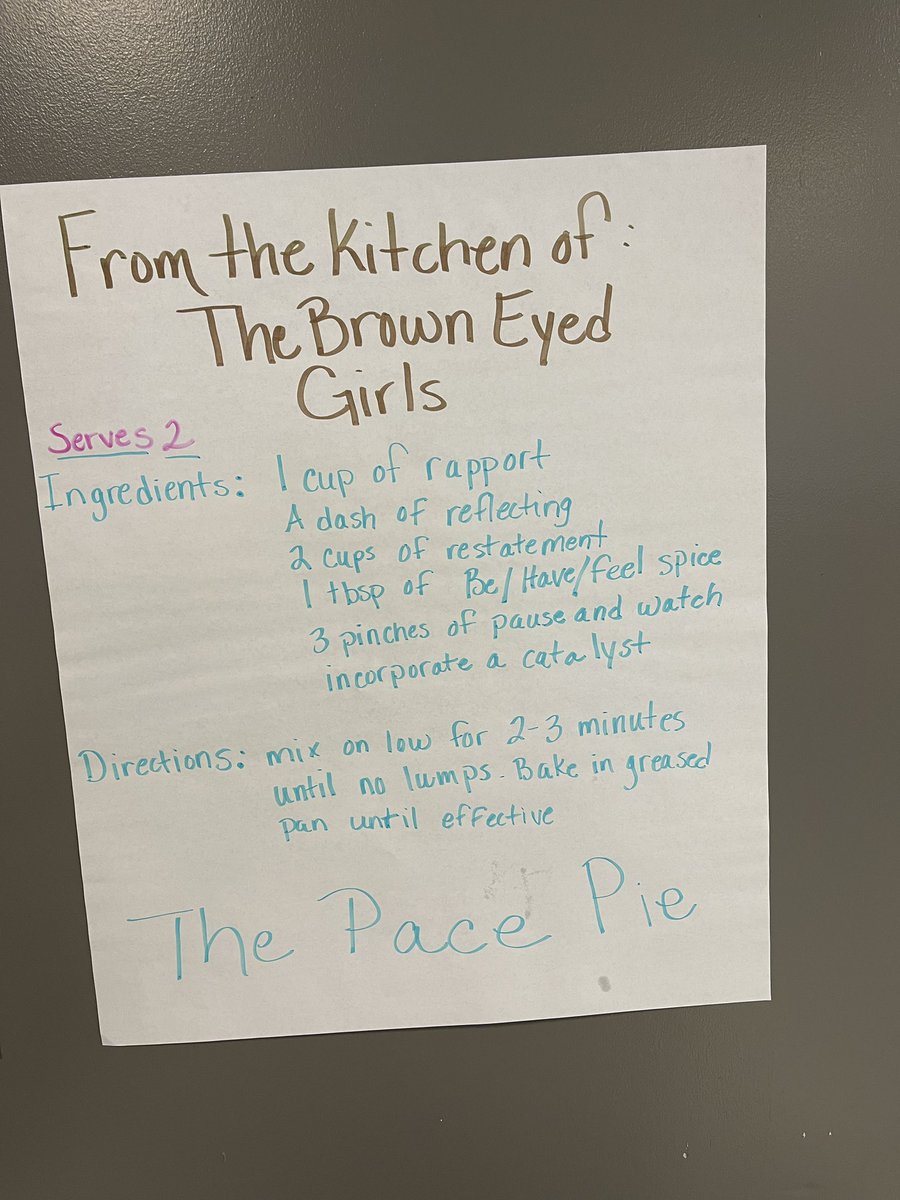 From the Kitchen of:
The Brown Eyed
Girls
Serves 2
Ingredients: 1 cup of rapport
A dash of reflecting
2 cups of restatement
1 tbsp of Be/Have/feel spice
3 pinches of pause and watch
incorporate a catalyst
Directions: mix on low for 2-3 minutes
until no lumps. Bake in greased
pan until effective
The Pace Pie